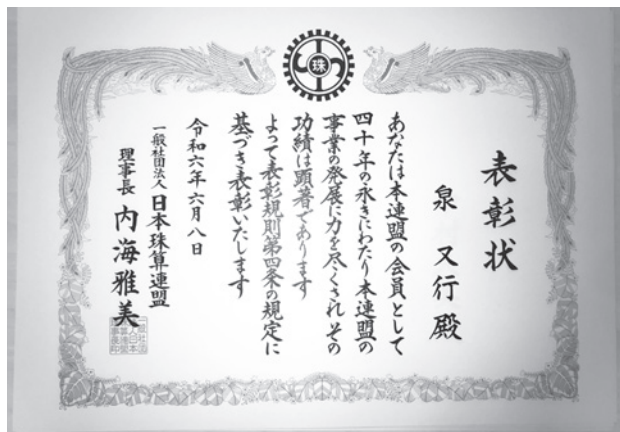 珠
表彰状
泉 又行 殿
あなたは本連盟の会員として
四十年の永きにわたり本連盟の
事業の発展に力を尽くされ その
功績は顕著であります
よって表彰規則第四条の規定に
基づき表彰いたします
令和六年六月八日
一般社団法人 日本珠算連盟
理事長 内海雅美